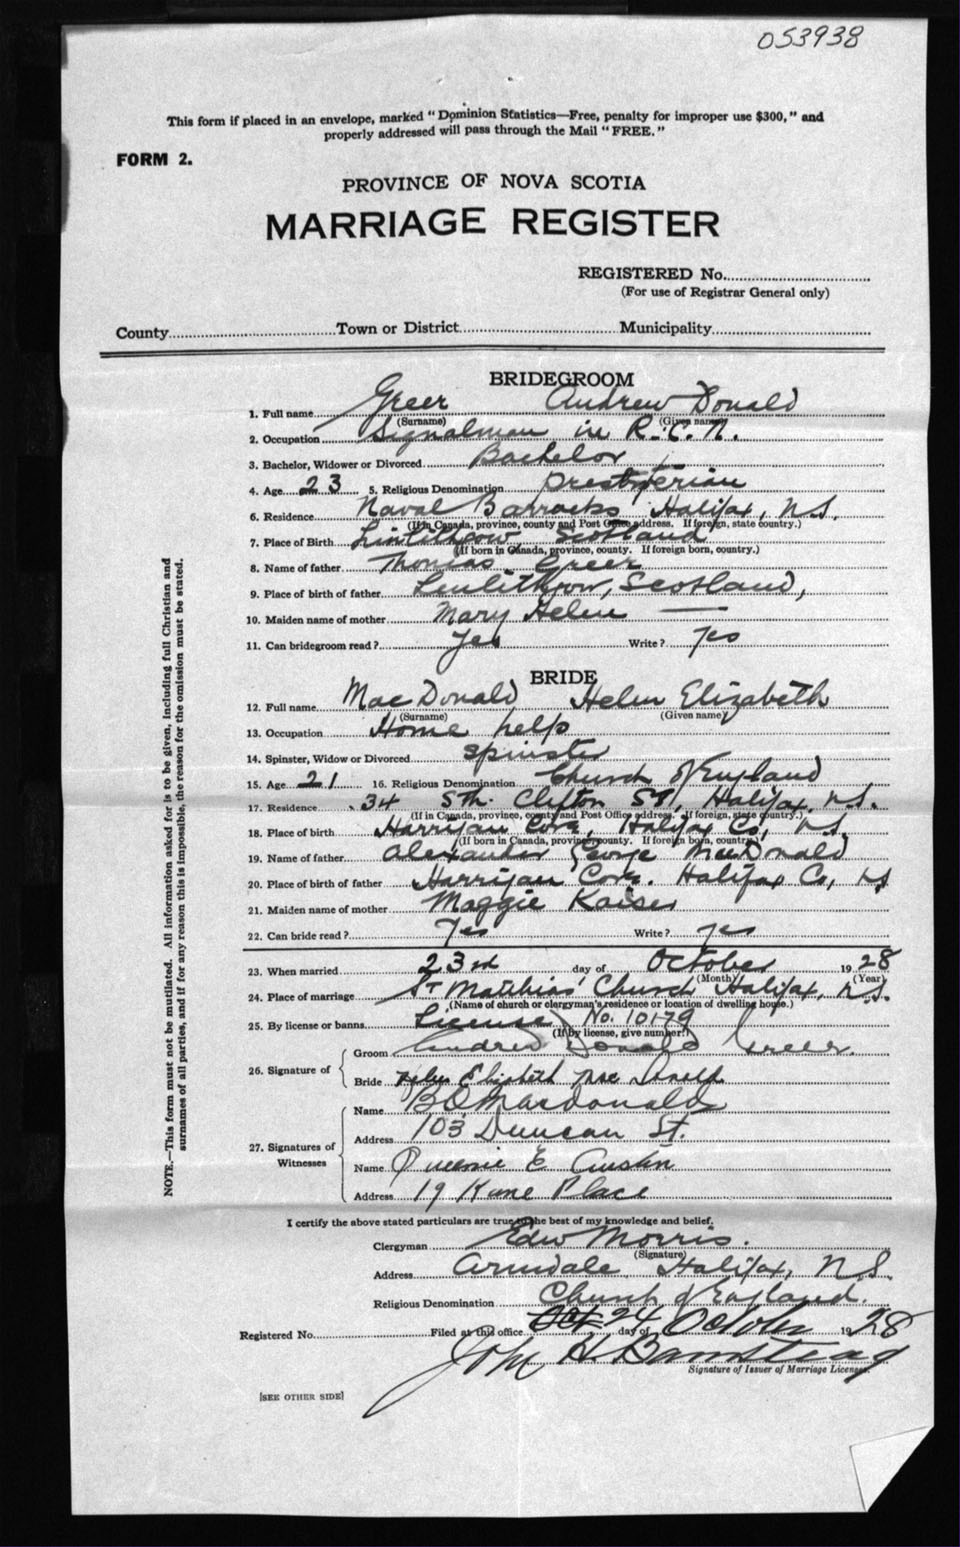 053938
This form if placed in an envelope, marked "Dominion Statistics—Free, penalty for improper use $300," and
properly addressed will pass through the Mail "FREE."
FORM 2.
PROVINCE OF NOVA SCOTIA
MARRIAGE REGISTER
REGISTERED No.
(For use of Registrar General only)
County Town or District Municipality
BRIDEGROOM
1. Full name Greer Andrew Donald
(Surname) (Given name)
2. Occupation Signalman in R.C.N.
3. Bachelor, Widower or Divorced Bachelor
4. Age 23 5. Religious Denomination Presbyterian
6. Residence Naval Barracks Halifax, N.S.
(If in Canada, province, county and Post Office address. If foreign, state country.)
7. Place of Birth Linlithgow, Scotland
(If born in Canada, province, county. If foreign born, country.)
8. Name of father Thomas Greer
9. Place of birth of father Linlithgow, Scotland,
10. Maiden name of mother Mary Helen —
11. Can bridegroom read? Yes Write? Yes
BRIDE
12. Full name MacDonald Helen Elizabeth
(Surname) (Given name)
13. Occupation Home help
14. Spinster, Widow or Divorced Spinster
15. Age 21 16. Religious Denomination Church of England
17. Residence 34 Sth. Clifton St, Halifax, N.S.
(If in Canada, province, county and Post Office address. If foreign, state country.)
18. Place of birth Harrigan Cove, Halifax Co, N.S.
(If born in Canada, province, county. If foreign born, country)
19. Name of father Alexander George MacDonald
20. Place of birth of father Harrigan Cove. Halifax Co, N.S
21. Maiden name of mother Maggie Kaiser
22. Can bride read? Yes Write? Yes
23. When married 23rd day of October 1928
(Month) (Year)
24. Place of marriage St Matthias' Church Halifax, N.S.
(Name of church or clergyman's residence or location of dwelling house.)
25. By license or banns License No. 10179
(If by license, give number.)
26. Signature of Groom Andrew Donald Greer.
Bride Helen Elizabeth Mac Donald
27. Signatures of Witnesses Name B. Macdonald
Address 103 Duncan St.
Name Queenie E Austin
Address 19 Kane Place
I certify the above stated particulars are true to the best of my knowledge and belief.
Clergyman Edw Morris.
(Signature)
Address Armdale, Halifax, N.S.
Religious Denomination Church of England.
Registered No. Filed at this office Oct 24 day of October 1928
John H Barnstead
Signature of Issuer of Marriage Licenses.
[SEE OTHER SIDE]
NOTE.—This form must not be mutilated. All information asked for is to be given, including full Christian and
surnames of all parties, and if for any reason this is impossible, the reason for the omission must be stated.